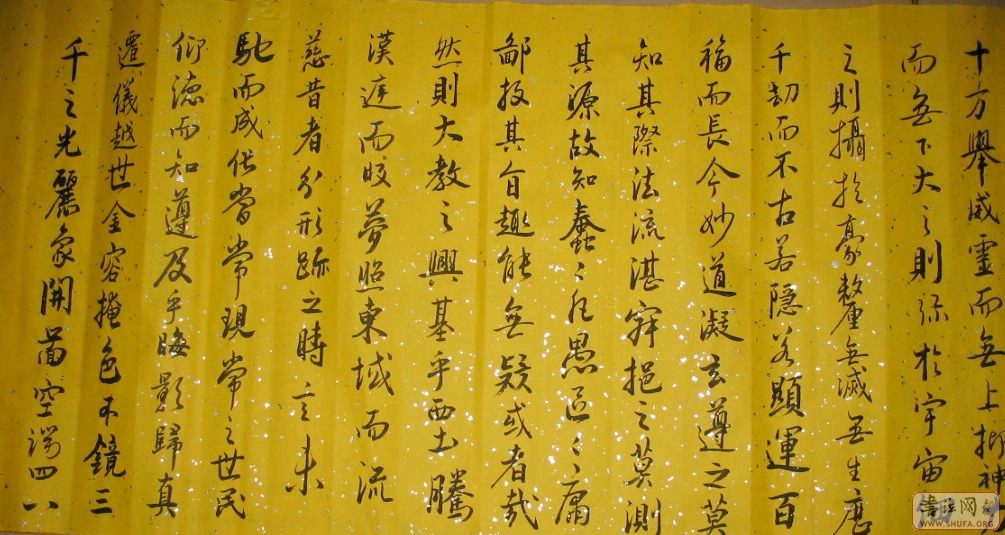 十方舉威靈而無上抑神力
而無下大之則弥於宇宙
之則攝於豪釐無滅無生歷
千劫而不古若隐若顯運百
福而長今妙道凝玄遵之莫
知其際法流湛寂挹之莫測
其源故知蠢〻凡愚區〻庸
鄙投其旨趣能無疑或者哉
然則大教之興基乎西土騰
漢庭而皎夢照東域而流
慈昔者分形跡之時言未
馳而成化當常現常之世民
仰德而知遵及乎晦影歸真
遷儀越世金容掩色不鏡三
千之光麗象開啚空端四八
WWW.SHUFA.ORG